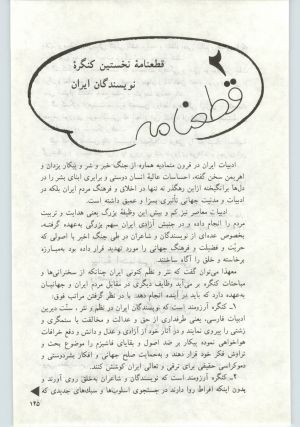 ۲
قطعنامهٔ نخستین کنگرهٔ
نویسندگان ایران
قطعنامه
ادبیات ایران در قرون متمادیه همواره از جنگ خیر و شر و پیکار یزدان و
اهریمن سخن گفته، احساسات عالیهٔ انسان دوستی و برابری ابنای بشر را در
دل‌ها برانگیخته ازاین رهگذر نه تنها در اخلاق و فرهنگ مردم ایران بلکه در
ادبیات و مدنیت جهانی تأثیری بسزا و عمیق داشته است.
ادبیات معاصر نیز کم و بیش این وظیفهٔ بزرگ یعنی هدایت و تربیت
مردم را انجام داده و در جنبش آزادی ایران سهم بزرگی به‌عهده گرفته،
بخصوص عده‌ای از نویسندگان و شاعران در طی جنگ اخیر با اصولی که
حریت و فضیلت و فرهنگ جهانی را مورد تهدید قرار داده بود به‌مبارزه
برخاسته و خلق را آگاه ساختند.
معهذا می‌توان گفت که نثر و نظم کنونی ایران چنانکه از سخنرانی‌ها و
مباحثات کنگره بر می‌آید وظایف دیگری در مقابل مردم ایران و جهانیان
به‌عهده دارد که باید در آینده انجام دهد. با در نظر گرفتن مراتب فوق:
۱ـ کنگره آرزومند است که نویسندگان ایران در نظم و نثر، سنت دیرین
ادبیات فارسی، یعنی طرفداری از حق و عدالت و مخالفت با ستمگری و
زشتی را پیروی نمایند و در آثار خود از آزادی و عدل و دانش و دفع خرافات
هواخواهی نموده پیکار بر ضد اصول و بقایای فاشیزم را موضوع بحث و
تراوش فکر خود قرار دهند و به‌حمایت صلح جهانی و افکار بشردوستی و
دموکراسی حقیقی برای ترقی و تعالی ایران کوشش کنند.
۲ـ کنگره آرزومند است که نویسندگان و شاعران به‌خلق روی آورند و
بدون اینکه افراط روا دارند در جستجوی اسلوب‌ها و سبک‌های جدیدی که
۱۲۵